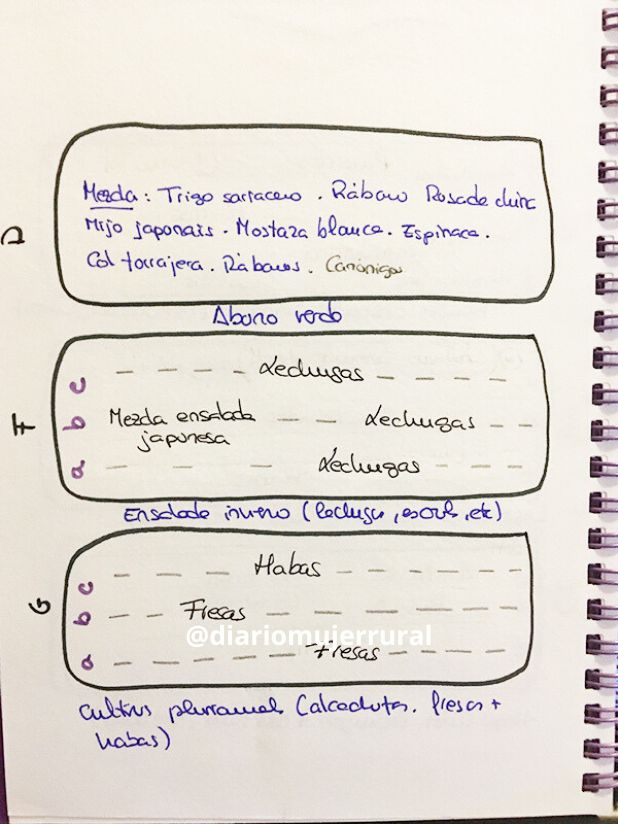 D
Mezcla : Trigo sarraceno . Rábano Rosa de china
Mijo japonais . Mostaza blanca . Espinaca .
Col forrajera . Rábanos . Canónigos
Abono verde
F
c Lechugas
b Mezcla ensalada Lechugas
japonesa
a Lechugas
Ensalada invierno ( lechuga , escarola , etc )
G
c Habas
b Fresas
@diariomujerrural
a Fresas
Cultivos plurianuales ( alcachofas . fresas +
habas )